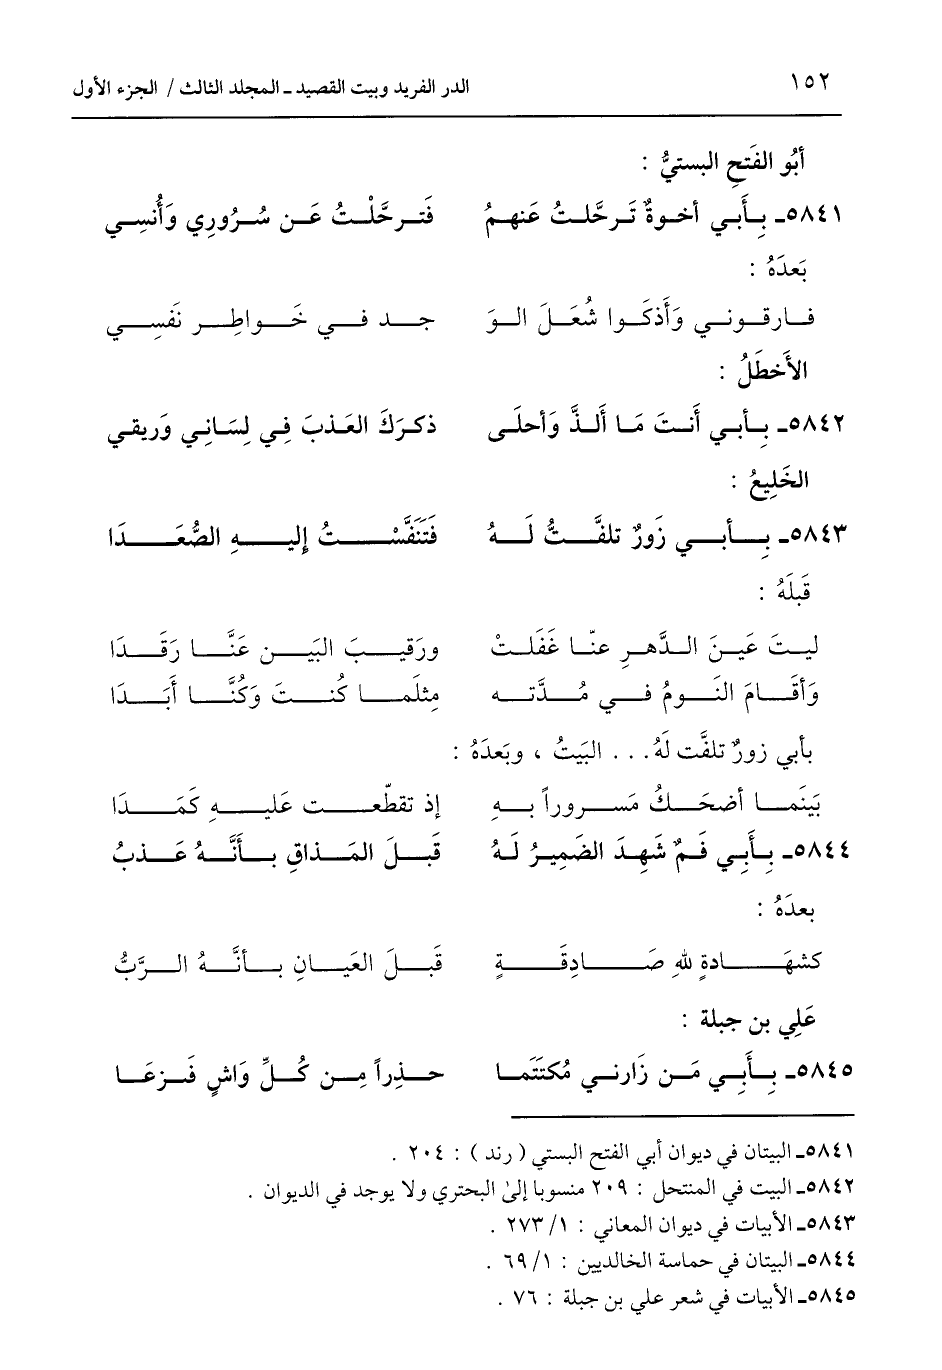 ١٥٢ الدر الفريد وبيت القصيد ـ المجلد الثالث / الجزء الأول
أبُو الفَتحِ البستيُّ :
٥٨٤١ـ بِأَبي أخوةٌ تَرحَّلتُ عَنهمُ فَتَرحَّلْتُ عَن سُرُورِي وَأُنسِي
بَعدَهُ :
فارقوني وَأَذكَوا شُعَلَ الوَ جد في خَواطِرِ نَفسِي
الأَخطَلُ :
٥٨٤٢ـ بِأبي أَنتَ مَا أَلذَّ وَأحلَى ذكرَكَ العَذبَ فِي لِسَانِي وَريقي
الخَلِيعُ :
٥٨٤٣ـ بِأبي زَورٌ تلفَّتُّ لَهُ فَتَنَفَّسْتُ إِليهِ الصُّعَدَا
قَبلَهُ :
ليتَ عَينَ الدَّهرِ عنّا غَفَلتْ ورَقيبَ البَينِ عَنَّا رَقَدَا
وَأقَامَ النَومُ في مُدَّته مِثلَما كُنتَ وَكُنَّا أَبَدَا
بأبي زورٌ تلفَّت لَهُ . . . البَيتُ ، وبَعدَهُ :
بَينَما أضحَكُ مَسروراً بهِ إذ تقطّعت عَليهِ كَمَدَا
٥٨٤٤ـ بِأَبي فَمٌ شَهِدَ الضَميرُ لَهُ قَبلَ المَذاقِ بأَنَّهُ عَذبُ
بعدَهُ :
كشهَادةٍ للهِ صَادِقَةٍ قَبلَ العَيانِ بأنَّهُ الرَّبُّ
عَلِي بن جبلة :
٥٨٤٥ـ بِأَبِي مَن زَارني مُكتَتَما حذِراً مِن كُلِّ وَاشٍ فَزعَا
٥٨٤١ـ البيتان في ديوان أبي الفتح البستي ( رند ) : ٢٠٤ .
٥٨٤٢ـ البيت في المنتحل : ٢٠٩ منسوبا إلىٰ البحتري ولا يوجد في الديوان .
٥٨٤٣ـ الأبيات في ديوان المعاني : ١/ ٢٧٣ .
٥٨٤٤ـ البيتان في حماسة الخالديين : ١/ ٦٩ .
٥٨٤٥ـ الأبيات في شعر علي بن جبلة : ٧٦ .